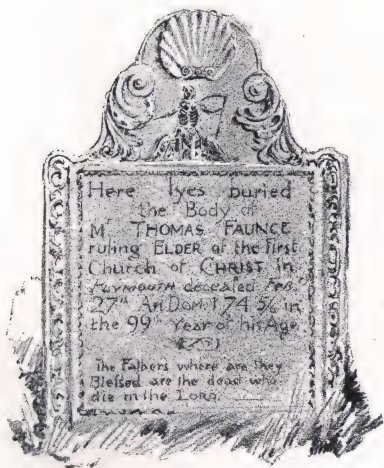 Here lyes buried
the Body of
Mr THOMAS FAUNCE
ruling ELDER of the first
Church of CHRIST in
PLYMOUTH deceased Feb:
27th An: Dom: 174 5/6 in
the 99th Year of his Age
The Fathers where are they
Blessed are the dead who
die in the LORD.